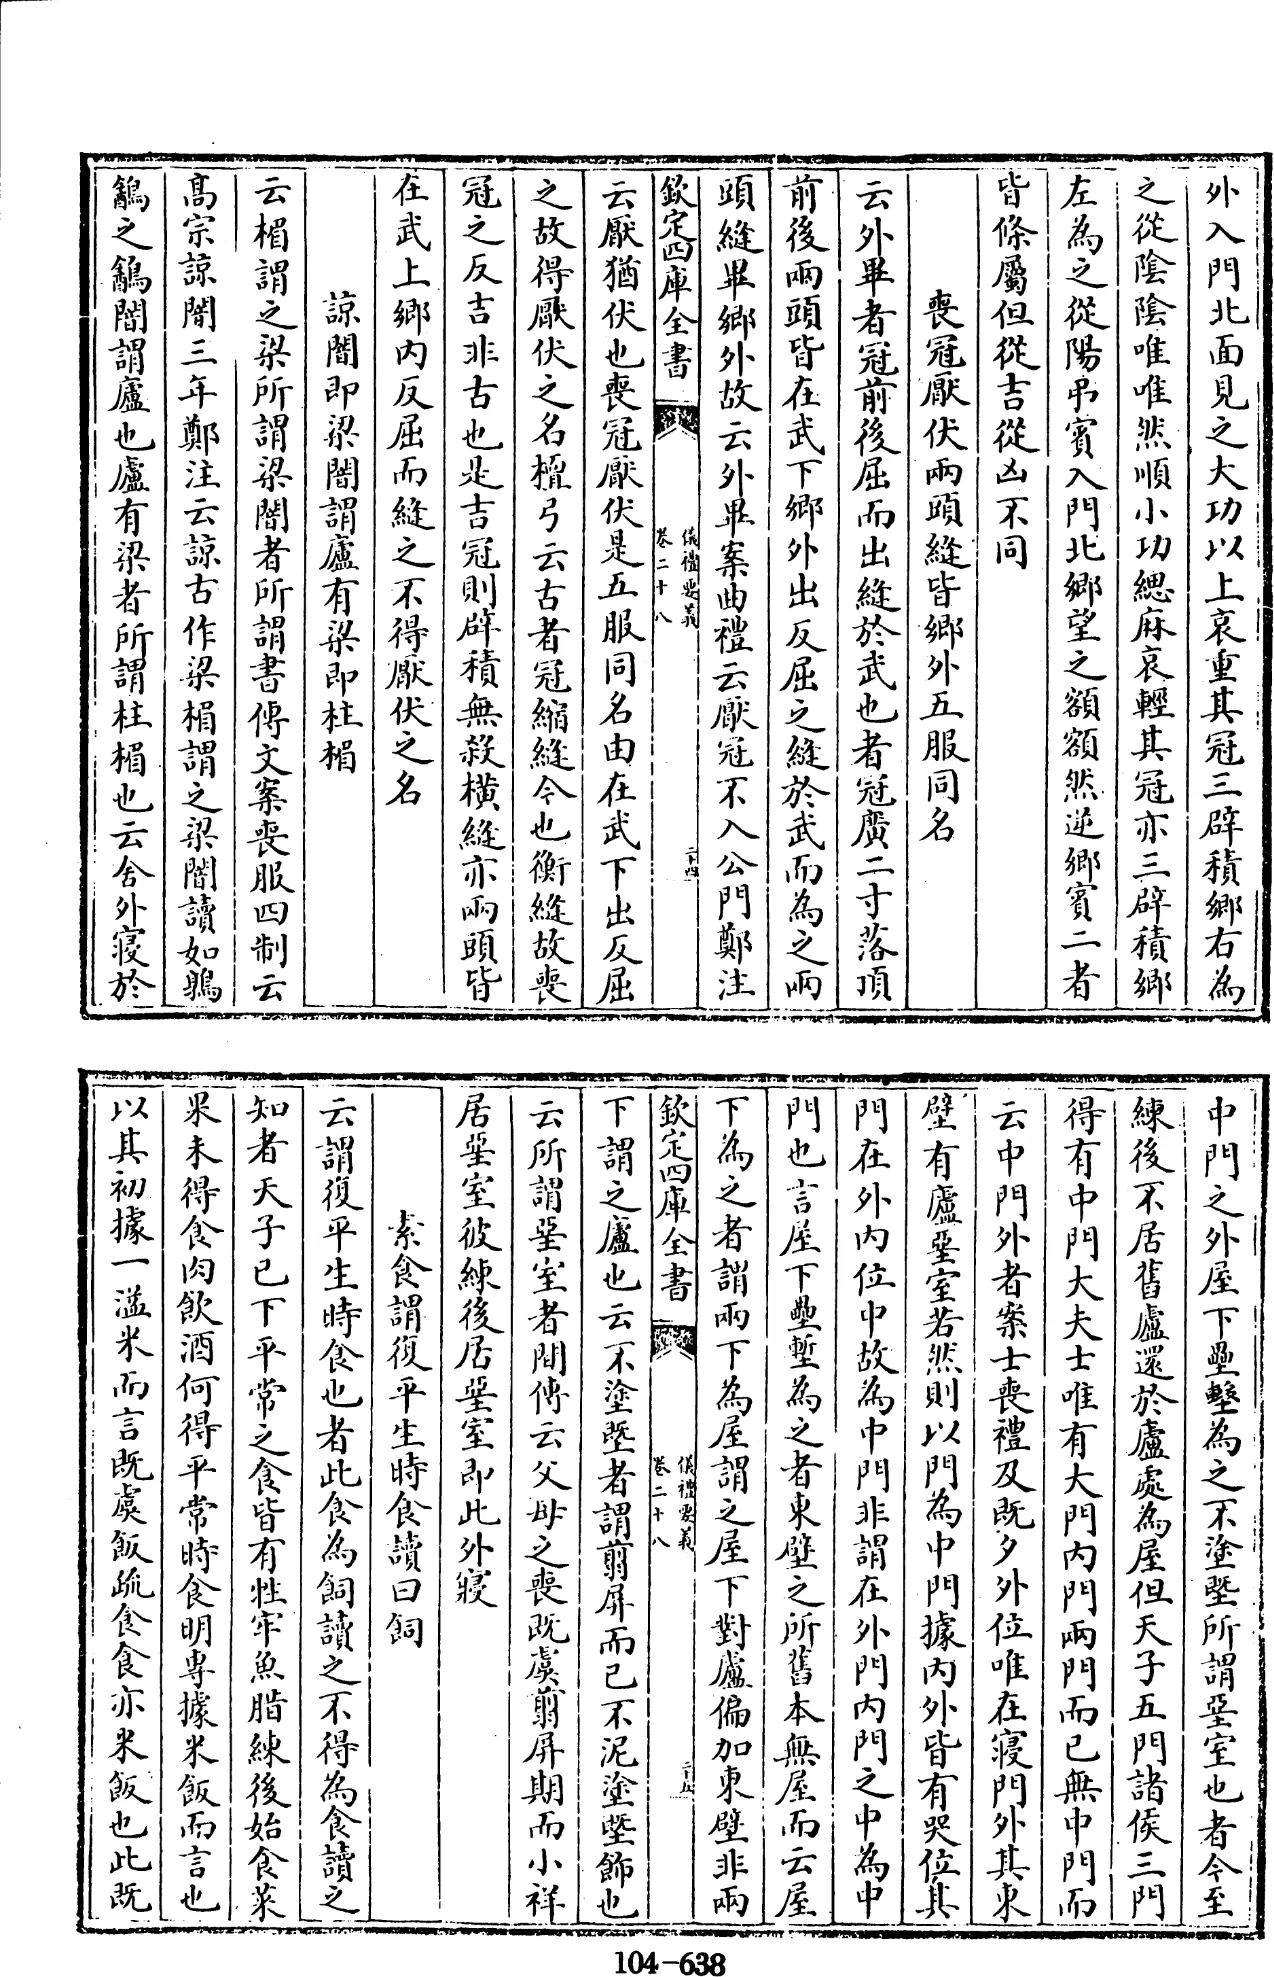 外入門北面見之大功以上哀重其冠三辟積鄉右為
之從陰陰唯唯然順小功緦麻哀輕其冠亦三辟積鄉
左為之從陽弔賓入門北鄉望之額額然逆鄉賓二者
皆條屬但從吉從凶不同
喪冠厭伏兩頭縫皆鄉外五服同名
云外畢者冠前後屈而出縫於武也者冠廣二寸落頂
前後兩頭皆在武下鄉外出反屈之縫於武而為之兩
頭縫畢鄉外故云外畢案曲禮云厭冠不入公門鄭注
欽定四庫全書
儀禮要義
卷二十八
二十四
云厭猶伏也喪冠厭伏是五服同名由在武下出反屈
之故得厭伏之名檀弓云古者冠縮縫今也衡縫故喪
冠之反吉非古也是吉冠則辟積無殺橫縫亦兩頭皆
在武上鄉內反屈而縫之不得厭伏之名
諒闇即梁闇謂廬有梁即柱楣
云楣謂之梁所謂梁闇者所謂書傳文案喪服四制云
高宗諒闇三年鄭注云諒古作梁楣謂之梁闇讀如鶉
鷂之鷂闇謂廬也廬有梁者所謂柱楣也云舍外寢於
中門之外屋下壘墼為之不塗塈所謂堊室也者今至
練後不居舊廬還於廬處為屋但天子五門諸侯三門
得有中門大夫士唯有大門內門兩門而已無中門而
云中門外者案士喪禮及既夕外位唯在寢門外其東
壁有廬堊室若然則以門為中門據內外皆有哭位其
門在外內位中故為中門非謂在外門內門之中為中
門也言屋下壘墼為之者東壁之所舊本無屋而云屋
下為之者謂兩下為屋謂之屋下對廬偏加東壁非兩
欽定四庫全書
儀禮要義
卷二十八
二十五
下謂之廬也云不塗塈者謂翦屏而已不泥塗塈飾也
云所謂堊室者間傳云父母之喪既虞翦屏期而小祥
居堊室彼練後居堊室即此外寢
素食謂復平生時食讀曰飼
云謂復平生時食也者此食為飼讀之不得為食讀之
知者天子已下平常之食皆有牲牢魚腊練後始食菜
果未得食肉飲酒何得平常時食明專據米飯而言也
以其初據一溢米而言既虞飯疏食食亦米飯也此既
104-638